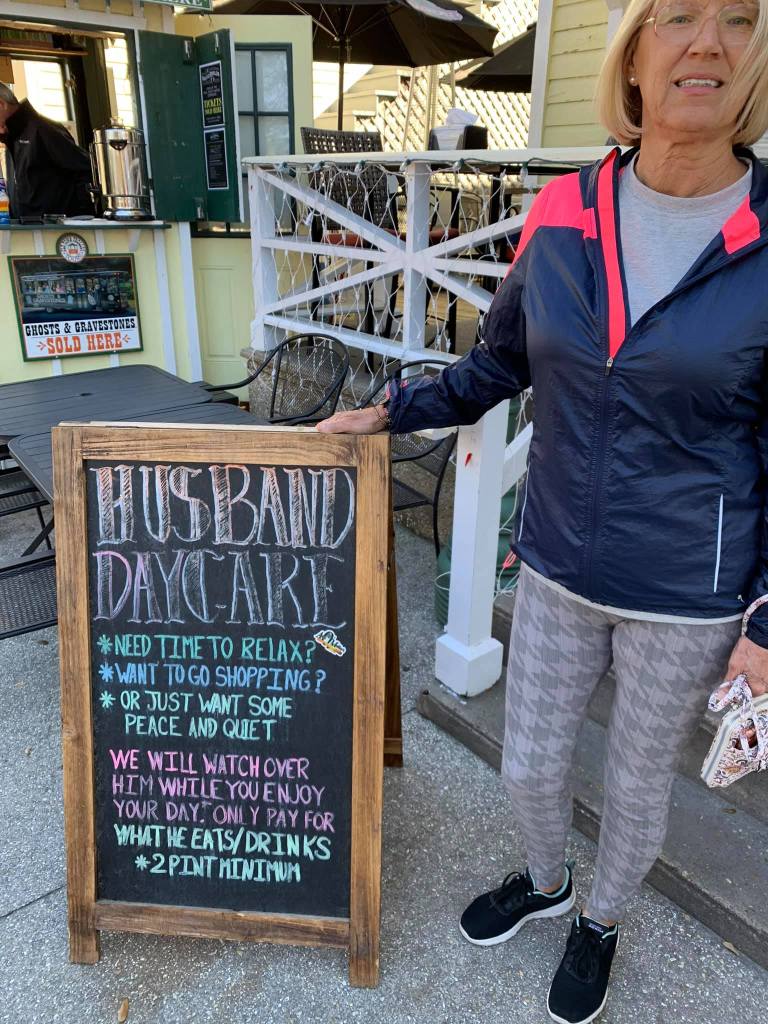 TICKETS
SOLD HERE
GHOSTS & GRAVESTONES
SOLD HERE
HUSBAND
DAYCARE
*NEED TIME TO RELAX?
*WANT TO GO SHOPPING?
* OR JUST WANT SOME
PEACE AND QUIET
WE WILL WATCH OVER
HIM WHILE YOU ENJOY
YOUR DAY. ONLY PAY FOR
WHAT HE EATS/DRINKS
*2 PINT MINIMUM